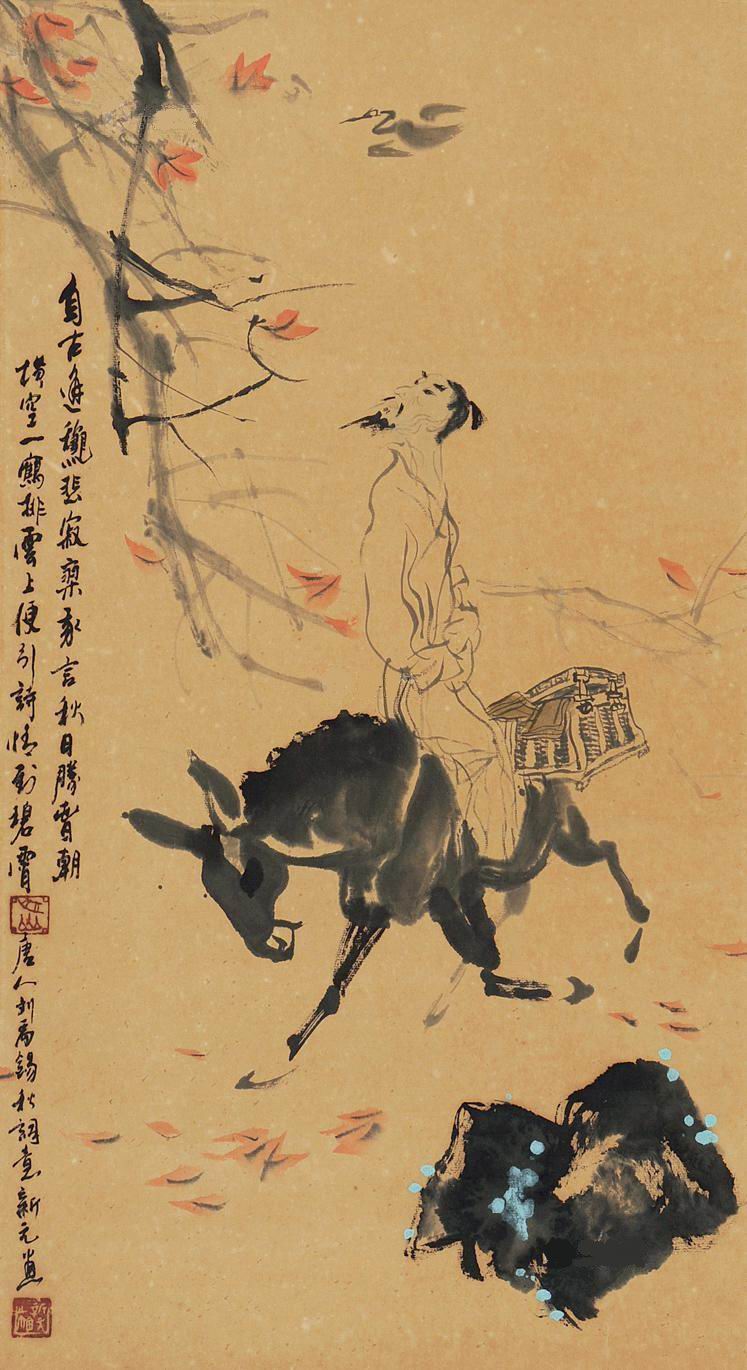 自古逢龝悲寂寥我言秋日勝春朝
横空一鶴排雲上便引詩情到碧霄
唐人刘禹錫秋詞意新元畫